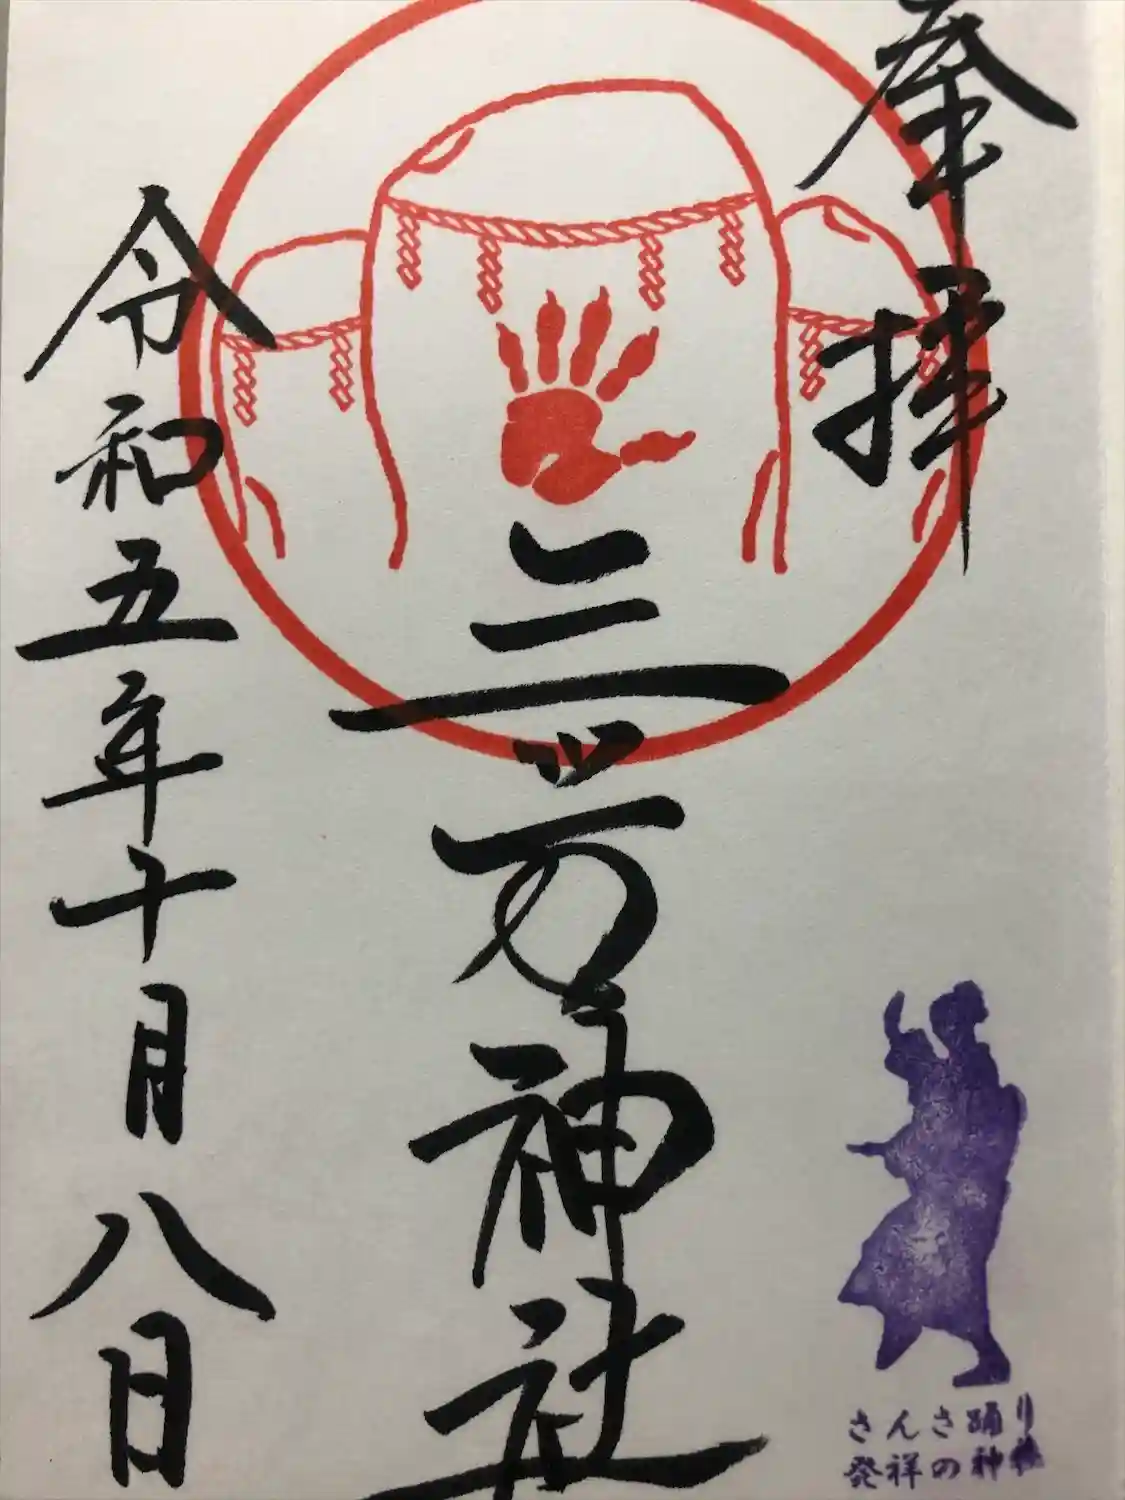 奉拝
三ツ石神社
令和五年十月八日
さんさ踊り
発祥の神社